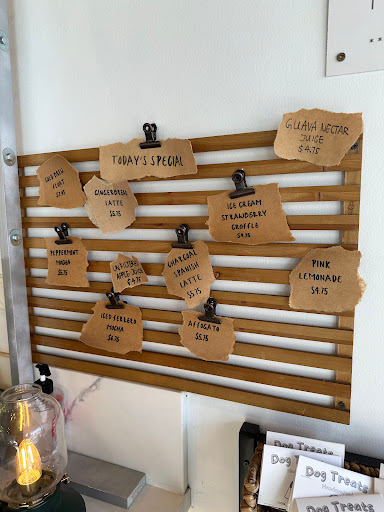 TODAY'S SPECIAL
GUAVA NECTAR
JUICE
$4.75
COLD BREW
FLOAT
GINGERBREAD
LATTE
$5.75
ICE CREAM
STRAWBERRY
CROFFLE
PEPPERMINT
MOCHA
$5.75
UNFILTERED
APPLE JUICE
$4.75
CHARCOAL
SPANISH
LATTE
$5.75
PINK
LEMONADE
$4.75
ICED FERRERO
MOCHA
$6.75
AFFOGATO
$5.75
Dog Treats
Dog Treats
Dog Treats
Dog Treats